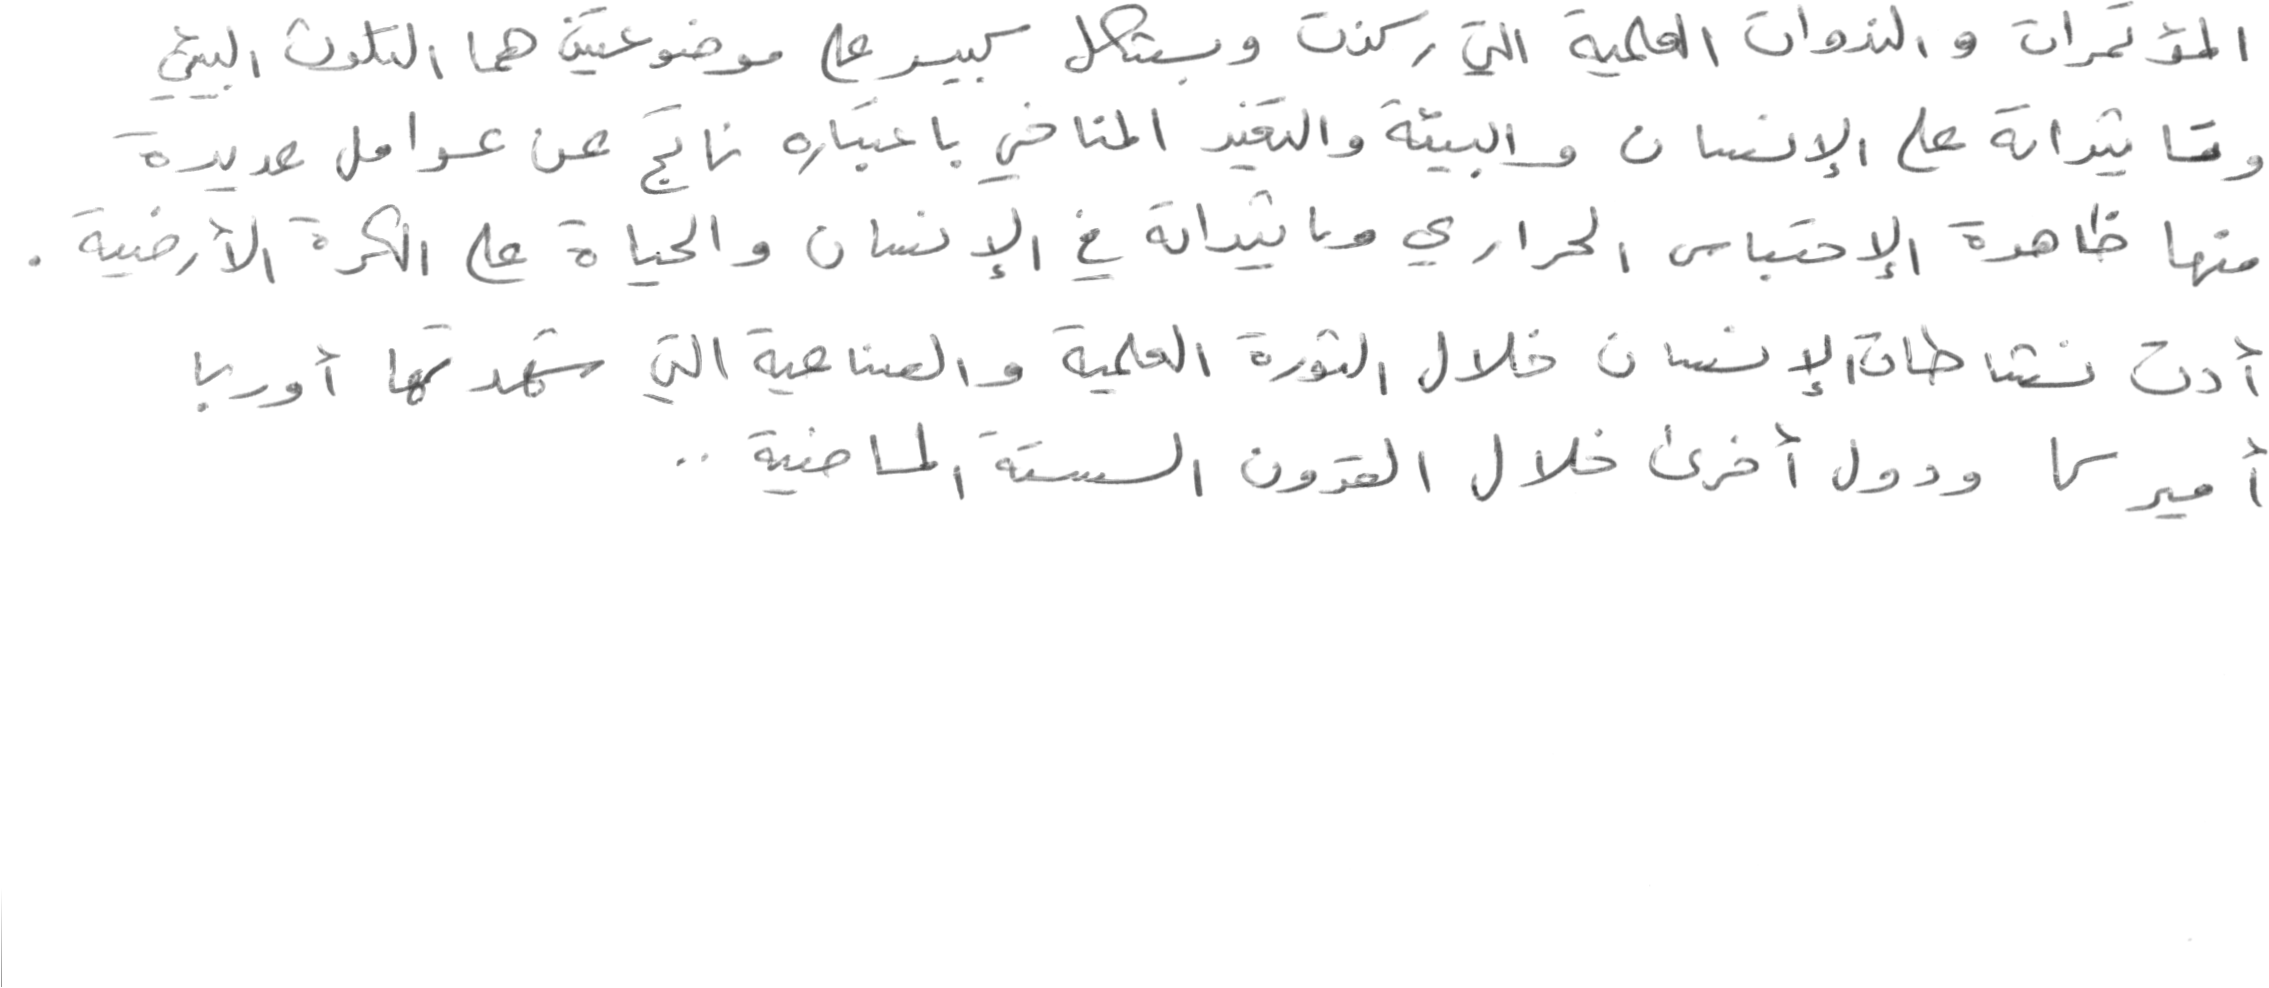 المؤتمرات و الندوات العلمية التي ركزت وبشكل كبير على موضوعين هما التلوث البيئي
وتاثيراته على الإنسان والبيئة والتغير المناخي باعتباره ناتج عن عوامل عديدة
منها ظاهرة الإحتباس الحراري وتاثيراته في الإنسان والحياة على الكرة الأرضية .
أدت نشاطات الإنسان خلال الثورة العلمية والصناعية التي شهدتها أوربا
أميركا ودول أخرى خلال القرون الستة الماضية ..